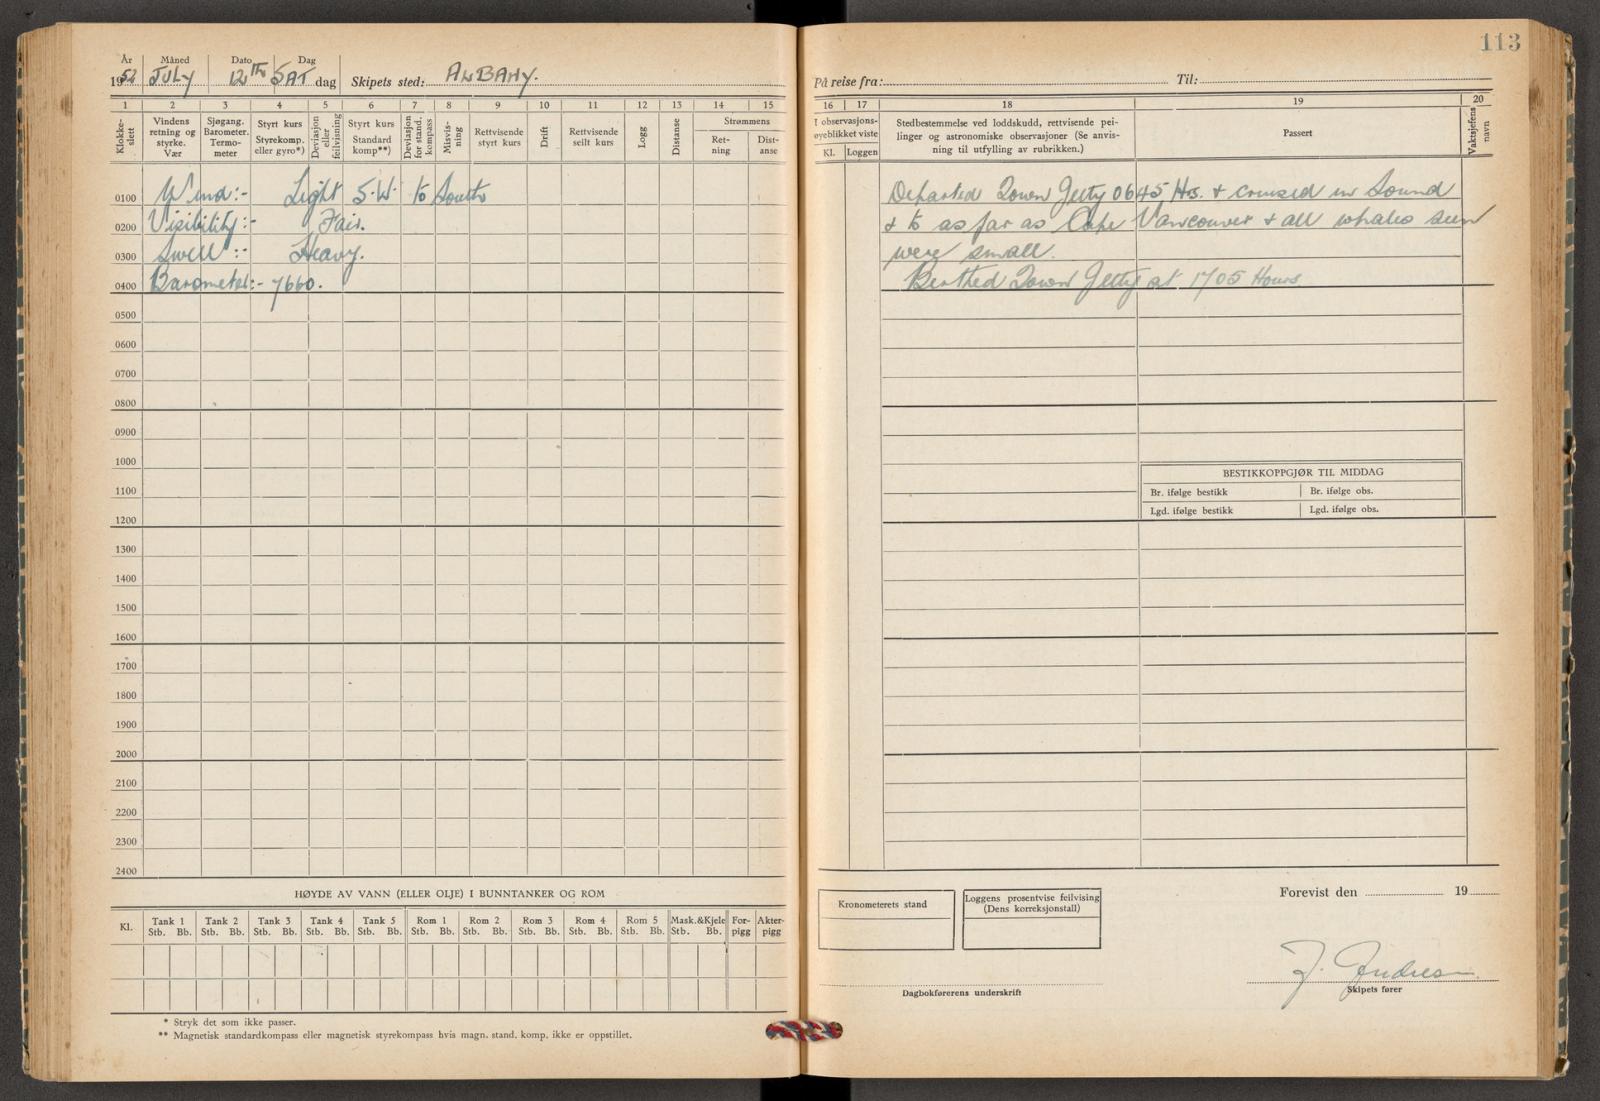 113
År Måned Dato Dag
1952 JULY 12th SAT dag Skipets sted: ALBANY.
På reise fra: Til:
1 2 3 4 5 6 7 8 9 10 11 12 13 14 15
Klokkeslett
Vindens retning og styrke. Vær
Sjøgang. Barometer. Termometer
Styrt kurs Styrekomp. eller gyro*)
Deviasjon eller feilvisning
Styrt kurs Standard komp**)
Deviasjon for stand. kompass
Misvisning
Rettvisende styrt kurs
Drift
Rettvisende seilt kurs
Logg
Distanse
Strømmens
Retning
Distanse
16 17 18 19 20
I observasjonsøyeblikket viste
Kl. Loggen
Stedbestemmelse ved loddskudd, rettvisende peilinger og astronomiske observasjoner (Se anvisning til utfylling av rubrikken.)
Passert
Vaktsjefens navn
0100 Wind:- Light S.W. to South
0200 Visibility:- Fair.
0300 Swell:- Heavy.
0400 Barometer:- 7660.
0500
0600
0700
0800
0900
1000
1100
1200
1300
1400
1500
1600
1700
1800
1900
2000
2100
2200
2300
2400
Departed Town Jetty 0645 Hrs. + cruised in Sound
+ to as far as Cape Vancouver + all whales seen
were small.
Berthed Town Jetty at 1705 Hours
BESTIKKOPPGJØR TIL MIDDAG
Br. ifølge bestikk Br. ifølge obs.
Lgd. ifølge bestikk Lgd. ifølge obs.
HØYDE AV VANN (ELLER OLJE) I BUNNTANKER OG ROM
Kl. Tank 1 Tank 2 Tank 3 Tank 4 Tank 5 Rom 1 Rom 2 Rom 3 Rom 4 Rom 5 Mask.&Kjele Forpigg Akterpigg
Stb. Bb. Stb. Bb. Stb. Bb. Stb. Bb. Stb. Bb. Stb. Bb. Stb. Bb. Stb. Bb. Stb. Bb. Stb. Bb. Stb. Bb.
* Stryk det som ikke passer.
** Magnetisk standardkompass eller magnetisk styrekompass hvis magn. stand. komp. ikke er oppstillet.
Kronometerets stand
Loggens prosentvise feilvisning
(Dens korreksjonstall)
Forevist den 19
Dagbokførerens underskrift
J. Andresen
Skipets fører